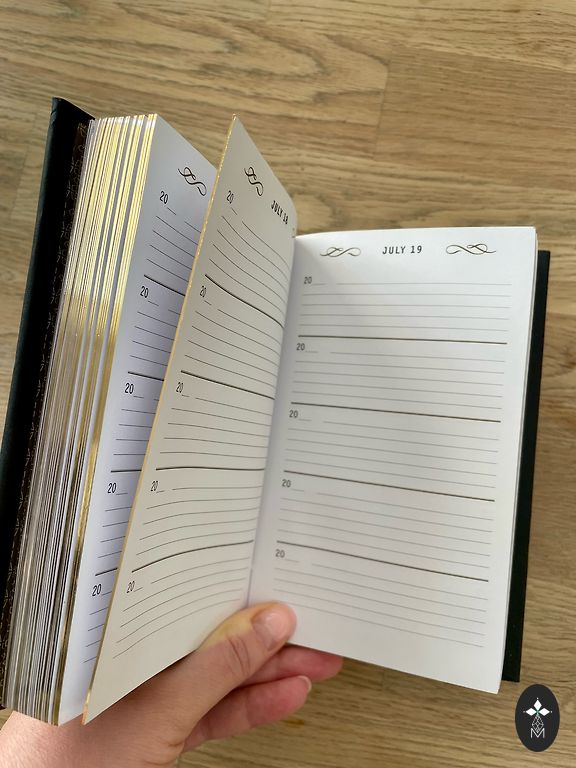 20__
20__
20__
20__
20__
JULY 18
20__
20__
20__
20__
20__
JULY 19
20__
20__
20__
20__
20__
M